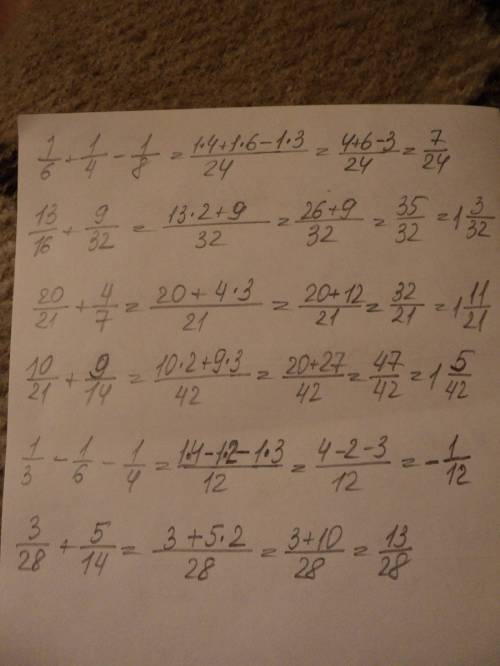 1/6 + 1/4 - 1/8 = (1·4+1·6-1·3)/24 = (4+6-3)/24 = 7/24
13/16 + 9/32 = (13·2+9)/32 = (26+9)/32 = 35/32 = 1 3/32
20/21 + 4/7 = (20+4·3)/21 = (20+12)/21 = 32/21 = 1 11/21
10/21 + 9/14 = (10·2+9·3)/42 = (20+27)/42 = 47/42 = 1 5/42
1/3 - 1/6 - 1/4 = (1·4-1·2-1·3)/12 = (4-2-3)/12 = -1/12
3/28 + 5/14 = (3+5·2)/28 = (3+10)/28 = 13/28